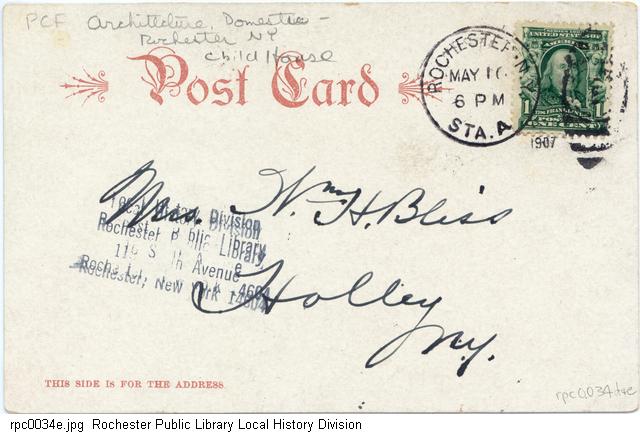 PCF Architecture, Domestic -
Rochester NY
Child House
Post Card
ROCHESTER, N.Y.
MAY 16
6 PM
STA. A
1907
1 ONE CENT 1
Mrs. Wm. H. Bliss
Holley
N.Y.
Local History Division
Rochester Public Library
115 South Avenue
Rochester, New York 14604
THIS SIDE IS FOR THE ADDRESS
rpc0034
rpc0034e.jpg Rochester Public Library Local History Division